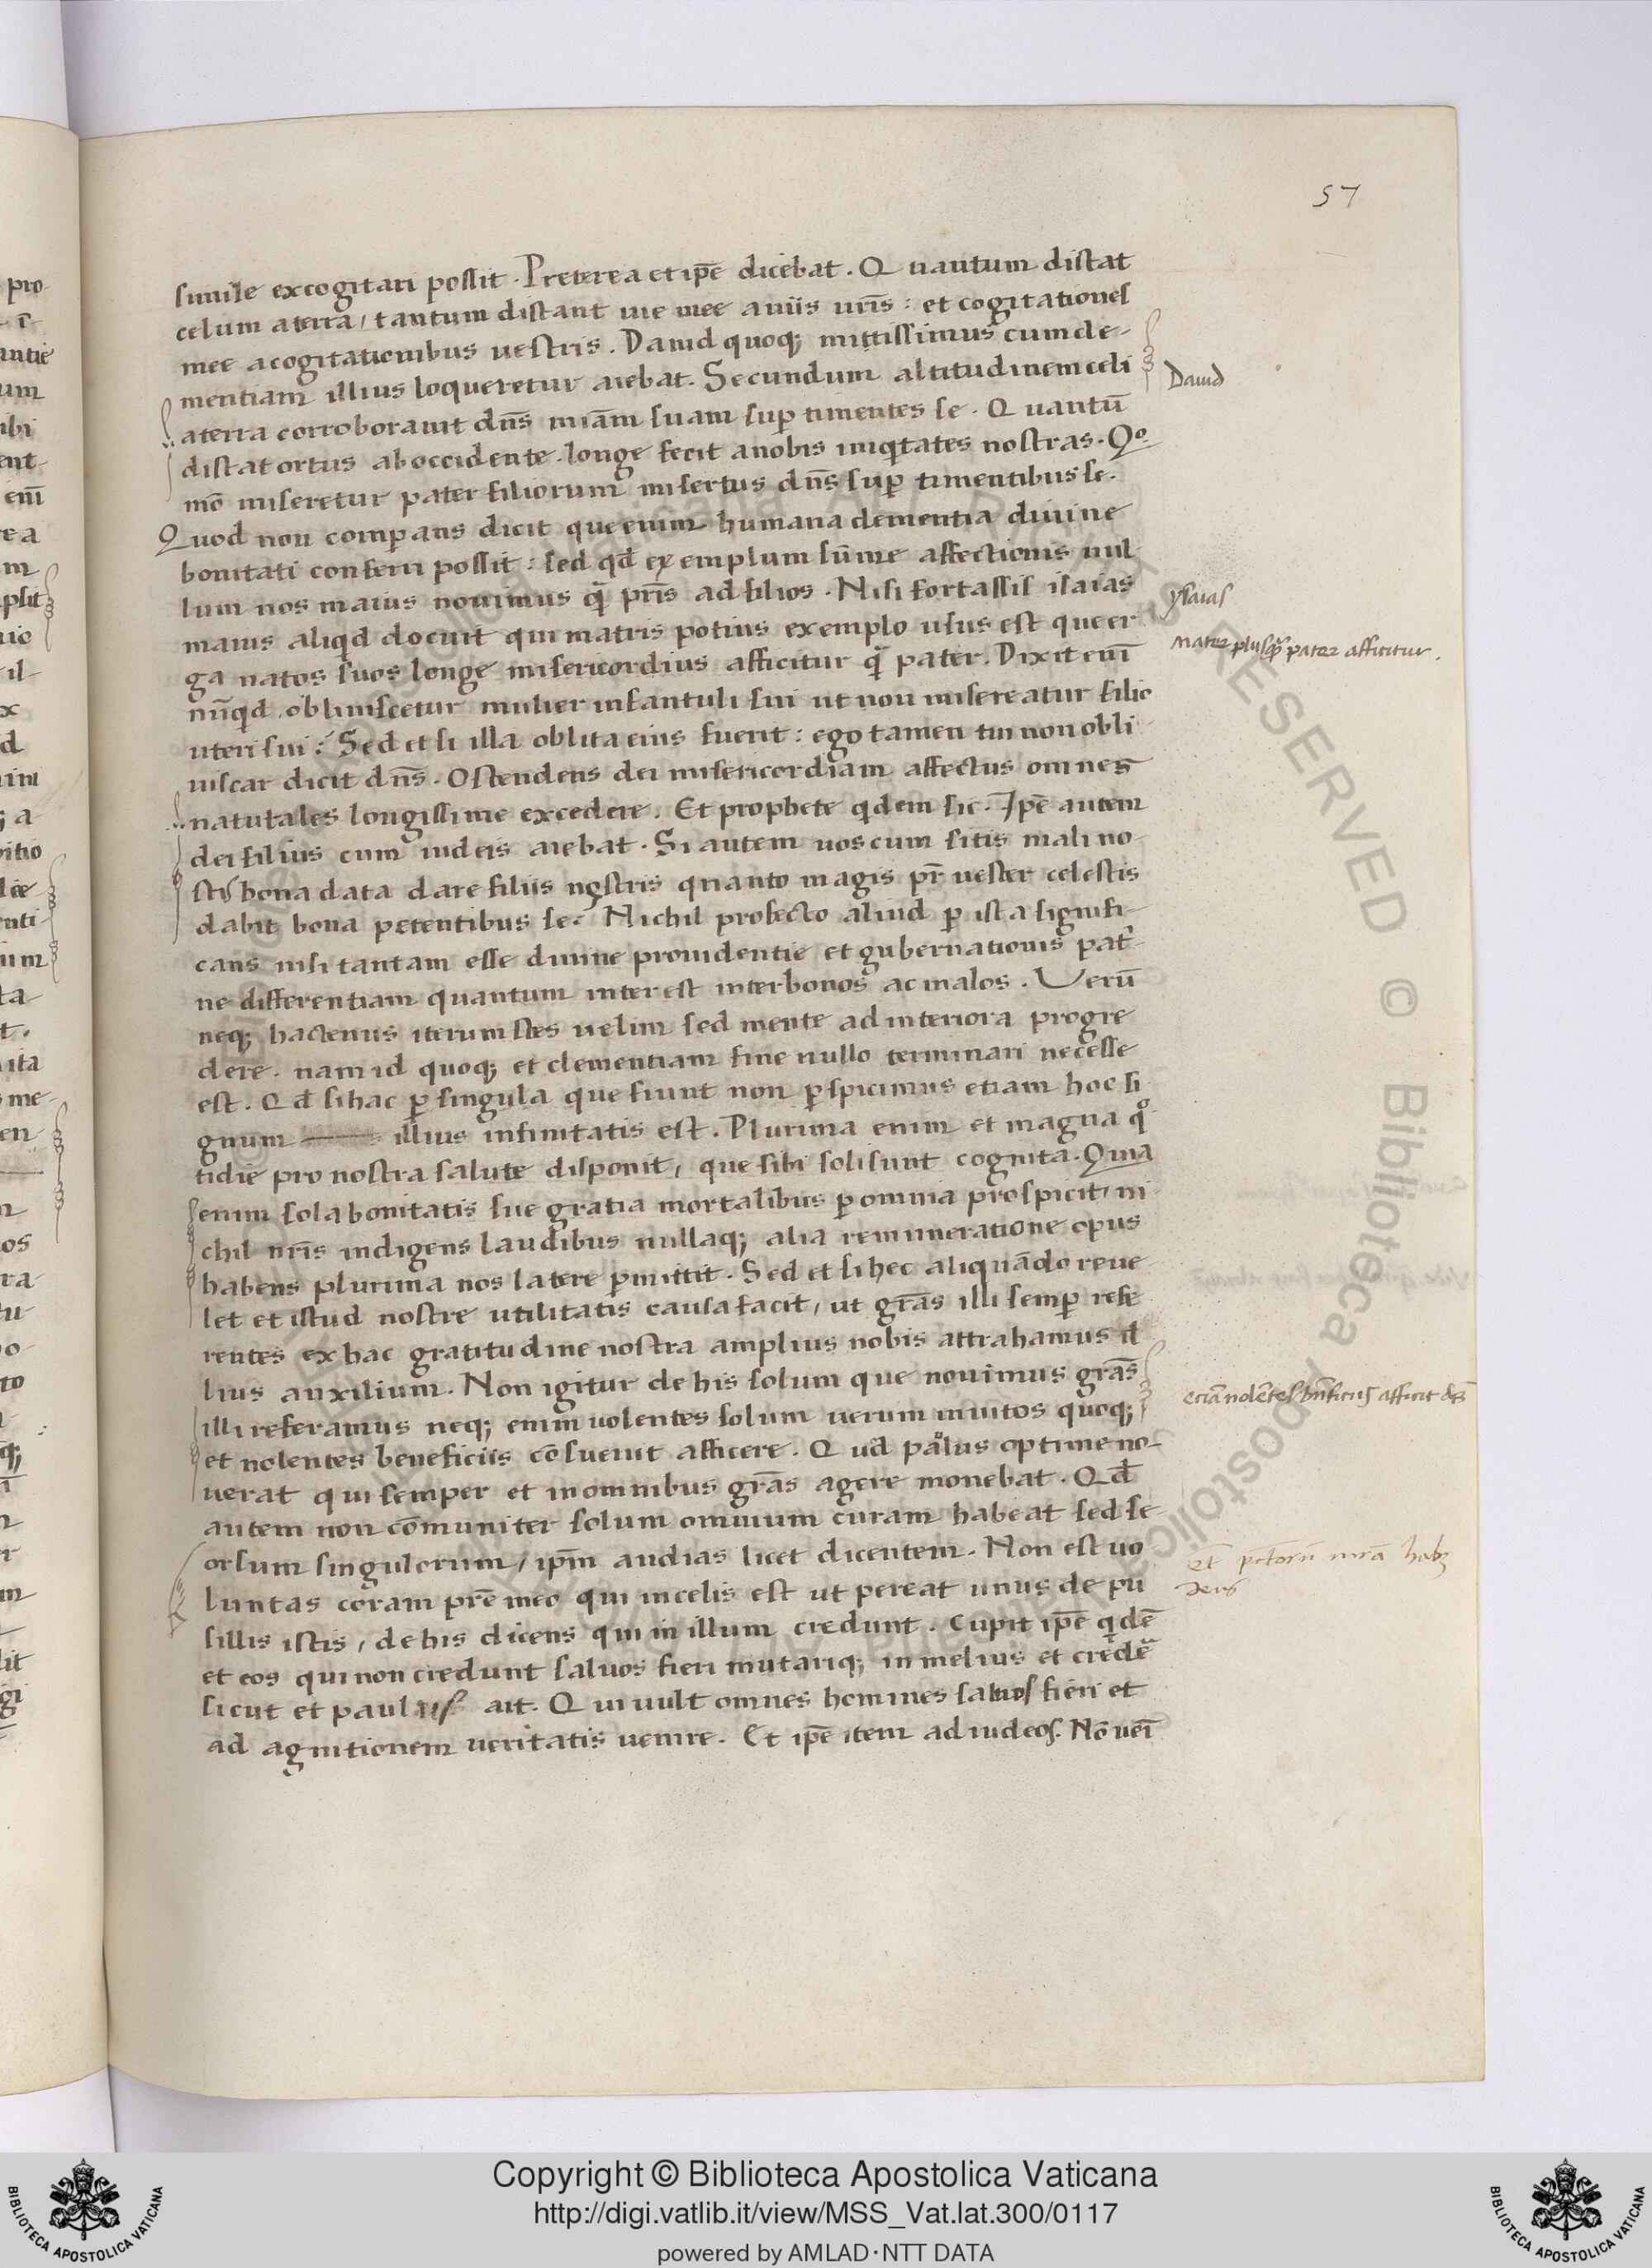 57
simile excogitari possit. Preterea et ip̄e dicebat. Quantum distat
celum a terra, tantum distant uie mee a uiis ur̄is: et cogitationes
mee a cogitationibus uestris. Dauid quoq; mittissimus cum de-
mentiam illius loqueretur aiebat. Secundum altitudinem celi
Dauid
a terra corroborauit dn̄s mīam suam sup̄ timentes se. Quantū
distat ortus ab occidente. longe fecit a nobis iniqitates nostras. Qo
mō miseretur pater filiorum misertus dn̄s sup̄ timentibus se.
Quod non comp̄ans dicit que enim humana clementia diuine
bonitati conferri possit: sed qd̄ exemplum sūme affectionis nul
lum nos maius nouimus q̄ pr̄is ad filios. Nisi fortassis isaias
ysaias
maius aliqd docuit qui matris potius exemplo usus est que er
ga natos suos longe misericordius afficitur q̄ pater. Dixit enī
mater plusq̄ pater afficitur.
nūqd obliuiscetur mulier infantuli sui ut non misereatur filio
uteri sui? Sed et si illa oblita eius fuerit: ego tamen tui non obli
uiscar dicit dn̄s. Ostendens dei misericordiam affectus omnes
naturales longissime excedere. Et prophete qdem sic. Ip̄e autem
dei filius cum iudeis aiebat. Si autem uos cum sitis mali no-
stis bona data dare filiis nostris quanto magis pr̄ uester celestis
dabit bona petentibus se? Nichil profecto aliud p̄ ista signifi-
cans nisi tantam esse diuine prouidentie et gubernationis pat̄-
ne differentiam quantum interest inter bonos ac malos. Uerū
neq; hactenus iterum stes uelim sed mente ad interiora progre
dere. nam id quoq; et clementiam fine nullo terminari necesse
est. Qd̄ si hac p̄ singula que fiunt non p̄spicimus etiam hoc si
gnum illius infinitatis est. Plurima enim et magna qo
tidie pro nostra salute disponit, que sibi soli sunt cognita. Quia
enim sola bonitatis sue gratia mortalibus p̄ omnia prospicit, ni
chil nr̄is indigens laudibus nullaq; alia remuneratione opus
habens plurima nos latere p̄mittit. Sed et si hec aliquādo reue
let et istud nostre utilitatis causa facit, ut grās illi semp̄ refe
rentes ex hac gratitudine nostra amplius nobis attrahamus il
lius auxilium. Non igitur de his solum que nouimus grās
illi referamus neq; enim uolentes solum uerum inuitos quoq;
etiā nolētes bn̄ficiis afficit ds̄
et nolentes beneficiis cōsueuit afficere. Qud̄ paulus optime no-
uerat qui semper et in omnibus grās agere monebat. Qd̄
autem non cōmuniter solum omnium curam habeat sed se-
orsum singulorum, ip̄m audias licet dicentem. Non est uo
et pctorū curā habz
deus
luntas coram pr̄e meo qui in celis est ut pereat unus de pu
sillis istis, de his dicens qui in illum credunt. Cupit ip̄e qdē
et eos qui non credunt saluos fieri mutariq; in melius et credē
sicut et paulus ait. Qui uult omnes homines saluos fieri et
ad agnitionem ueritatis uenire. Et ip̄e item ad iudeos. Nō uēi
Copyright © Biblioteca Apostolica Vaticana
http://digi.vatlib.it/view/MSS_Vat.lat.300/0117
powered by AMLAD·NTT DATA
BIBLIOTECA APOSTOLICA VATICANA
BIBLIOTECA APOSTOLICA VATICANA